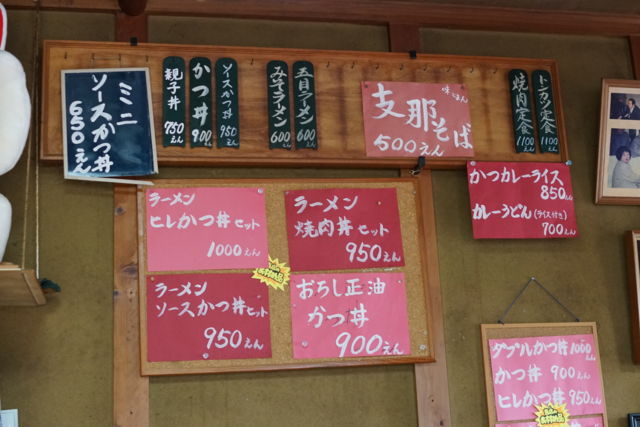 ミニ
ソースかつ丼
650えん
親子丼
750えん
かつ丼
900えん
ソースかつ丼
950えん
みそラーメン
600えん
五目ラーメン
600えん
味じまん
支那そば
500えん
焼肉定食
1100えん
トンカツ定食
1100えん
かつカレーライス
850えん
カレーうどん(ライス付き)
700えん
ラーメン
ヒレかつ丼セット
1000えん
ラーメン
焼肉丼セット
950えん
ラーメン
ソースかつ丼セット
950えん
おろし正油
かつ丼
900えん
ダブルかつ丼 1000えん
かつ丼 900えん
ヒレかつ丼 950えん